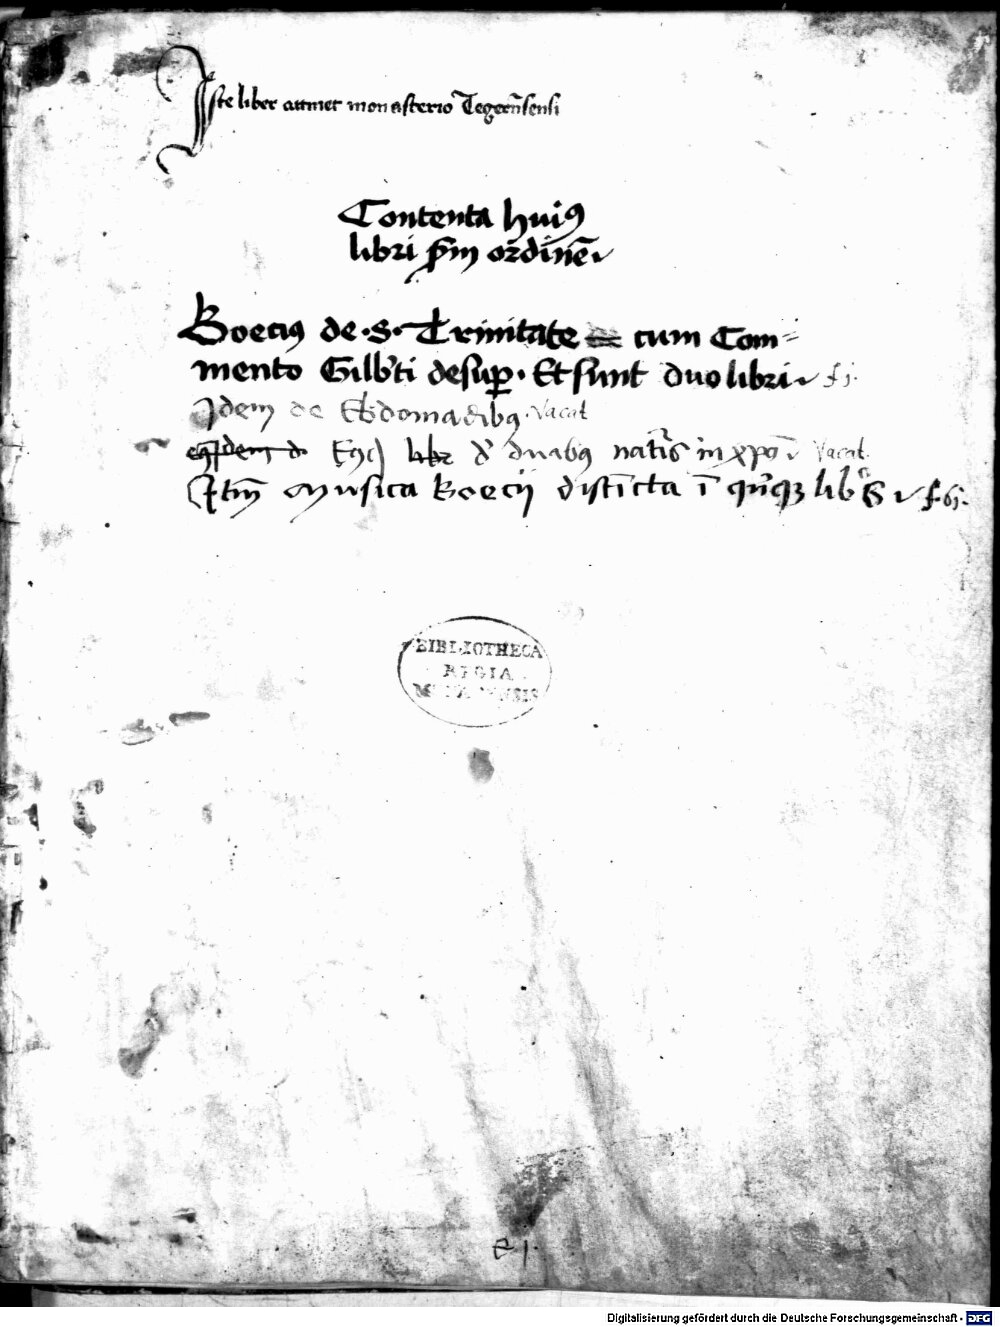 Iste liber attinet monasterio Tegern̄sensi
Contenta huiꝰ
libri ẜm ordinē
Boeciꝰ de · S · Trinitate cum Com=
mento Gilb'ti desuꝑ · Et sunt duo libri f 1.
Idem de Ebdomadibꝫ . vacat
Eiꝰdem libr d' duabꝫ nat'is in xpō vacat.
Itm̄ Musica Boecij distīcta ī qn̄qꝫ libris f. 61.
BIBLIOTHECA
REGIA
MONACENSIS
e 1.
Digitalisierung gefördert durch die Deutsche Forschungsgemeinschaft - DFG